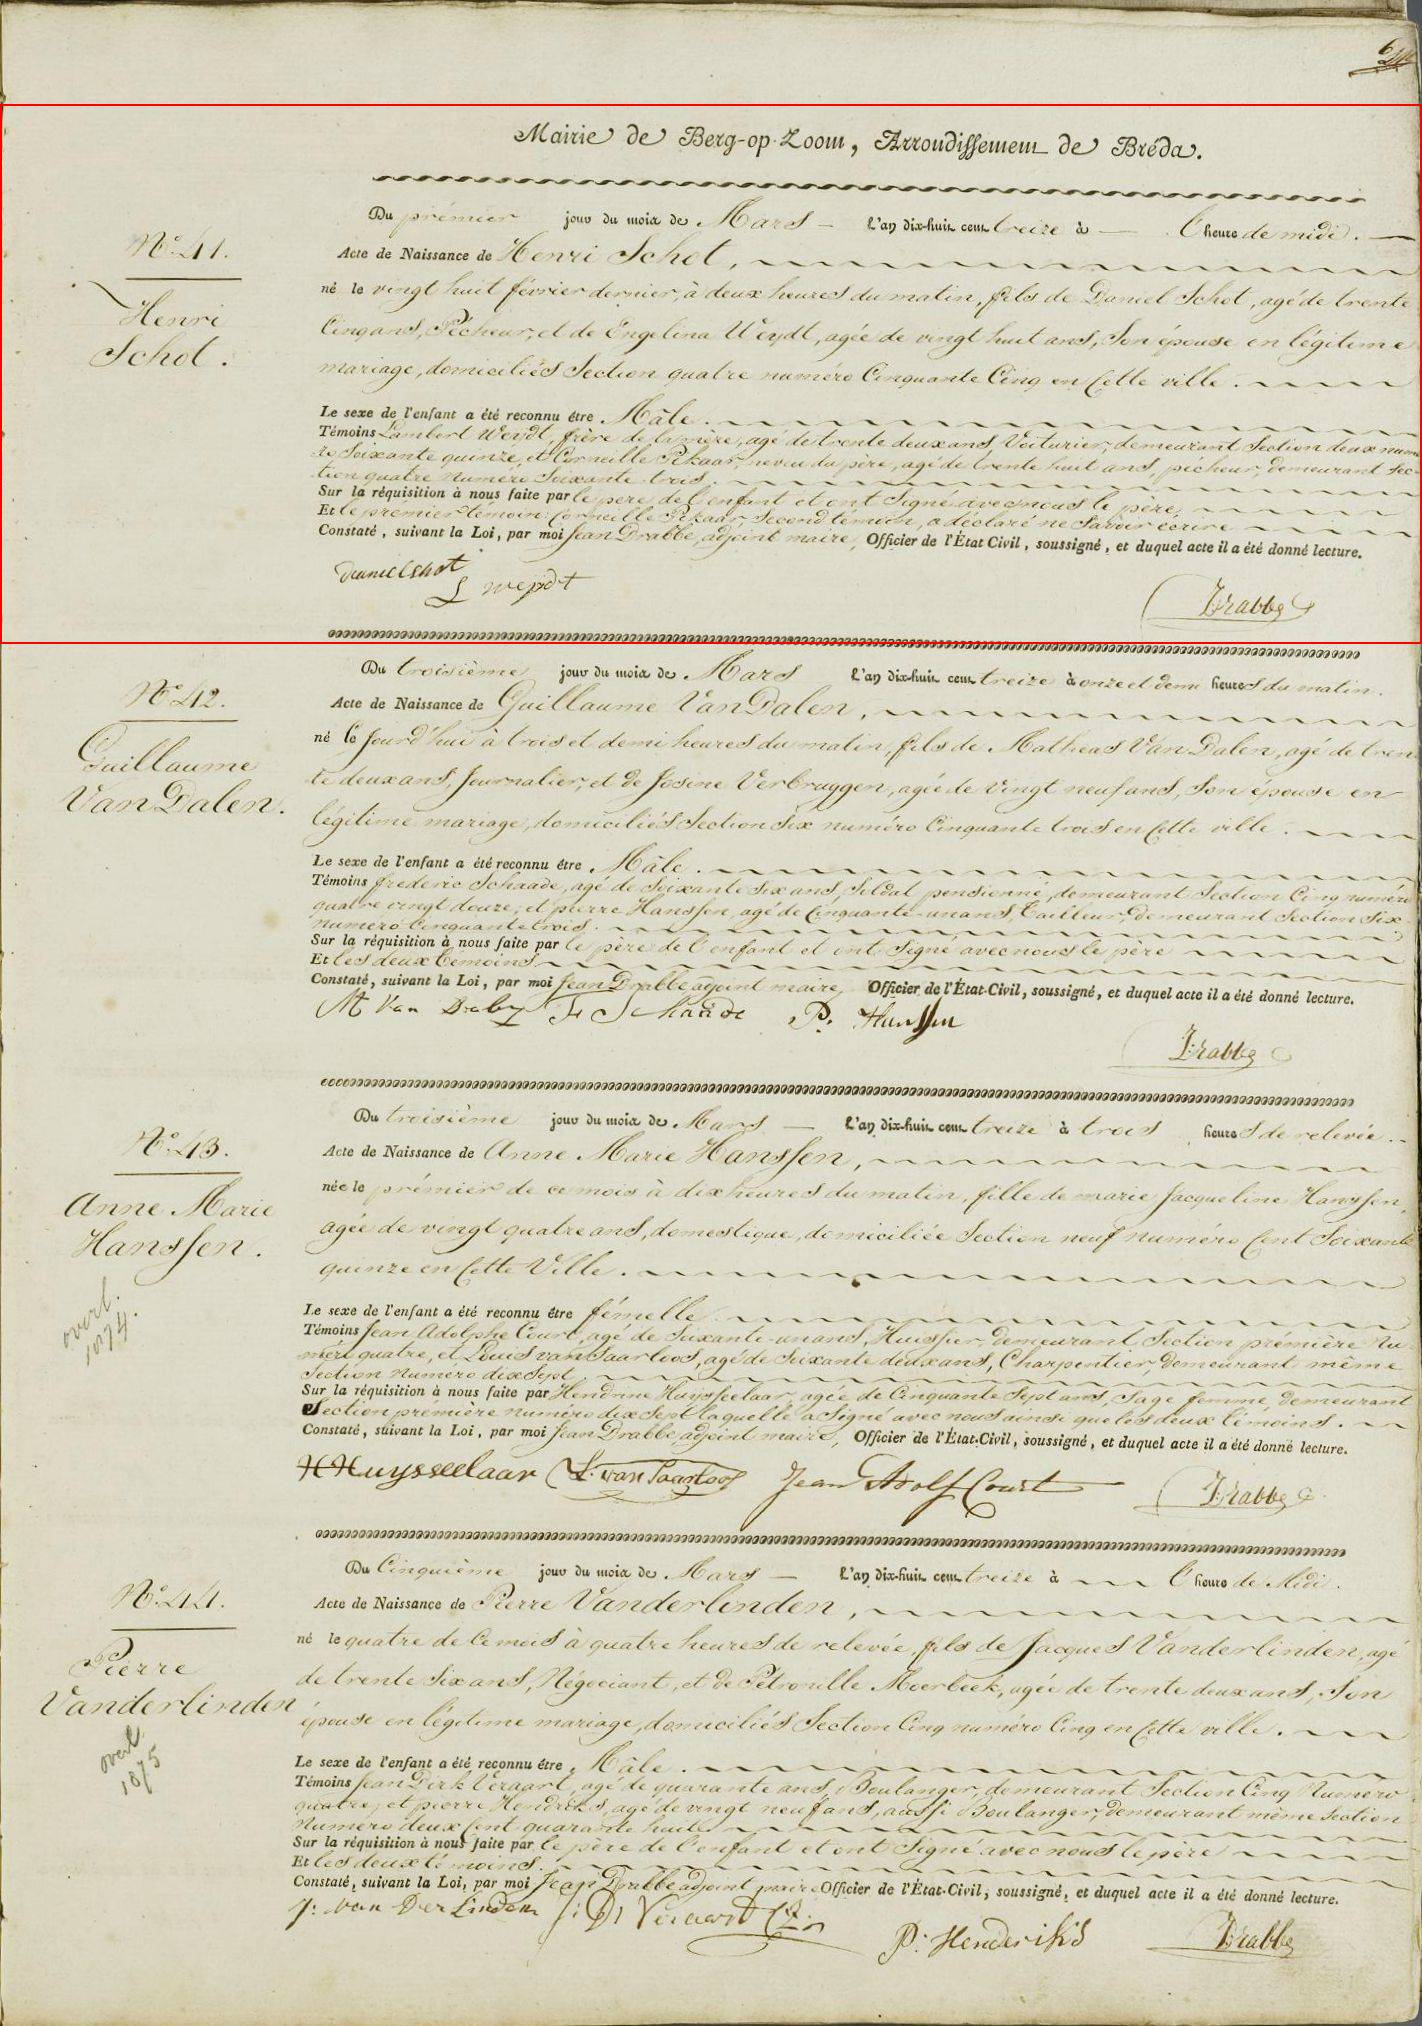 Mairie de Berg-op-Zoom, Arrondissement de Bréda.
Du prémier jour du mois de Mars l'an dix-huit cent treize à l'heure de midi.
No. 41.
Acte de Naissance de Henri Schot,
né le vingt huit février dernier, à deux heures du matin, fils de Daniel Schot, agé de trente
Henri
Cinq ans, Pêcheur, et de Engelina Weydt, agée de vingt huit ans, Son épouse en légitime
Schot.
mariage, domiciliés Section quatre numéro Cinquante Cinq en Cette ville.
Le sexe de l'enfant a été reconnu être Mâle.
Témoins Lambert Weydt, frère de la mère, agé de trente deux ans, Voiturier, demeurant Section deux numé
ro Soixante quinze, et Corneille Pikaar, neveu du père, agé de trente huit ans, pêcheur, demeurant Sec-
tion quatre numéro Soixante trois.
Sur la réquisition à nous faite par le père de l'enfant et ont Signé avec nous le père,
Et le premier témoin Corneille Pikaar, Second témoin, a déclaré ne Savoir écrire
Constaté, suivant la Loi, par moi Jean Drabbe, adjoint maire, Officier de l'État Civil, soussigné, et duquel acte il a été donné lecture.
Daniel Schot
L Weydt
Drabbe
Du troisième jour du mois de Mars l'an dix-huit cent treize à onze et demi heures du matin.
No. 42.
Acte de Naissance de Guillaume Van Dalen,
né le Jourd'hui à trois et demi heures du matin, fils de Matheas Van Dalen, agé de tren
Guillaume
te deux ans, Journalier, et de Josine Verbruggen, agée de Vingt neuf ans, Son épouse en
Van Dalen.
légitime mariage, domiciliés Section Six numéro Cinquante trois en Cette ville.
Le sexe de l'enfant a été reconnu être Mâle.
Témoins frederic Schaade, agé de Soixante Six ans, Soldat pensionné, demeurant Section Cinq numéro
quatre vingt douze, et pierre Hanssen, agé de Cinquante-un ans, Tailleur, demeurant Section Six
numéro Cinquante trois.
Sur la réquisition à nous faite par le père de l'enfant et ont Signé avec nous le père
Et les deux témoins
Constaté, suivant la Loi, par moi Jean Drabbe adjoint maire, Officier de l'État-Civil, soussigné, et duquel acte il a été donné lecture.
M Van F Schaade P. Hanssen
Drabbe
Du troisième jour du mois de Mars l'an dix-huit cent treize à trois heures de relevée.
No. 43.
Acte de Naissance de Anne Marie Hanssen,
née le prémier de ce mois à dix heures du matin, fille de marie Jacqueline Hanssen,
Anne Marie
agée de vingt quatre ans, domestique, domiciliée Section neuf numéro Cent Soixante
Hanssen.
quinze en Cette Ville.
overl.
1874.
Le sexe de l'enfant a été reconnu être fémelle
Témoins Jean Adolphe Court, agé de Soixante-un ans, Huissier, demeurant Section prémière Nu-
méro quatre, et Louis van Saarloos, agé de Soixante deux ans, Charpentier, demeurant même
Section Numéro dix Sept,
Sur la réquisition à nous faite par Hendrine Huysselaar, agée de Cinquante Sept ans, Sage femme, demeurant
Section prémière numéro dix Sept laquelle a Signé avec nous ainsi que les deux témoins.
Constaté, suivant la Loi, par moi Jean Drabbe, adjoint maire, Officier de l'État-Civil, soussigné, et duquel acte il a été donné lecture.
H Huysselaar L. van Saarloos Jean Adolf Court Drabbe
Du Cinquième jour du mois de Mars l'an dix-huit cent treize à l'heure de Midi.
No. 44.
Acte de Naissance de Pierre Vanderlinden,
né le quatre de Ce mois à quatre heures de relevée, fils de Jacques Vanderlinden, agé
Pierre
de trente Six ans, Négociant, et de Pétronille Moerbeek, agée de trente deux ans, Son
Vanderlinden
épouse en légitime mariage, domiciliés Section Cinq numéro Cinq en Cette ville.
overl.
1875
Le sexe de l'enfant a été reconnu être Mâle.
Témoins Jean Dirk Veraart, agé de quarante ans, Boulanger, demeurant Section Cinq Numéro
quatre, et pierre Hendriks, agé de vingt neuf ans, aussi Boulanger, demeurant même Section
Numéro deux Cent quarante huit.
Sur la réquisition à nous faite par le père de l'enfant et ont Signé avec nous le père
Et les deux témoins.
Constaté, suivant la Loi, par moi Jean Drabbe adjoint maire Officier de l'État-Civil, soussigné, et duquel acte il a été donné lecture.
J: van Der Linden J: D: Veraart
P: Henderikss Drabbe